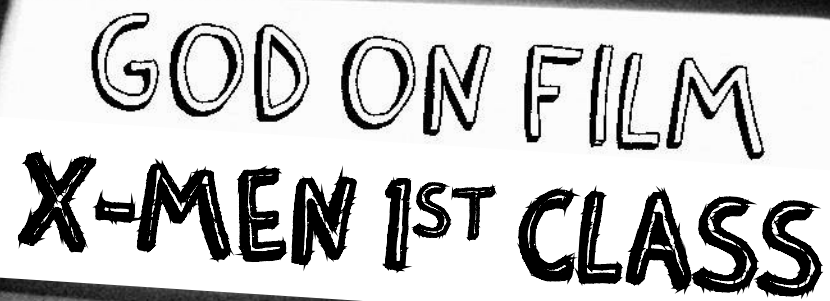 GOD ON FILM
X-MEN 1ST CLASS